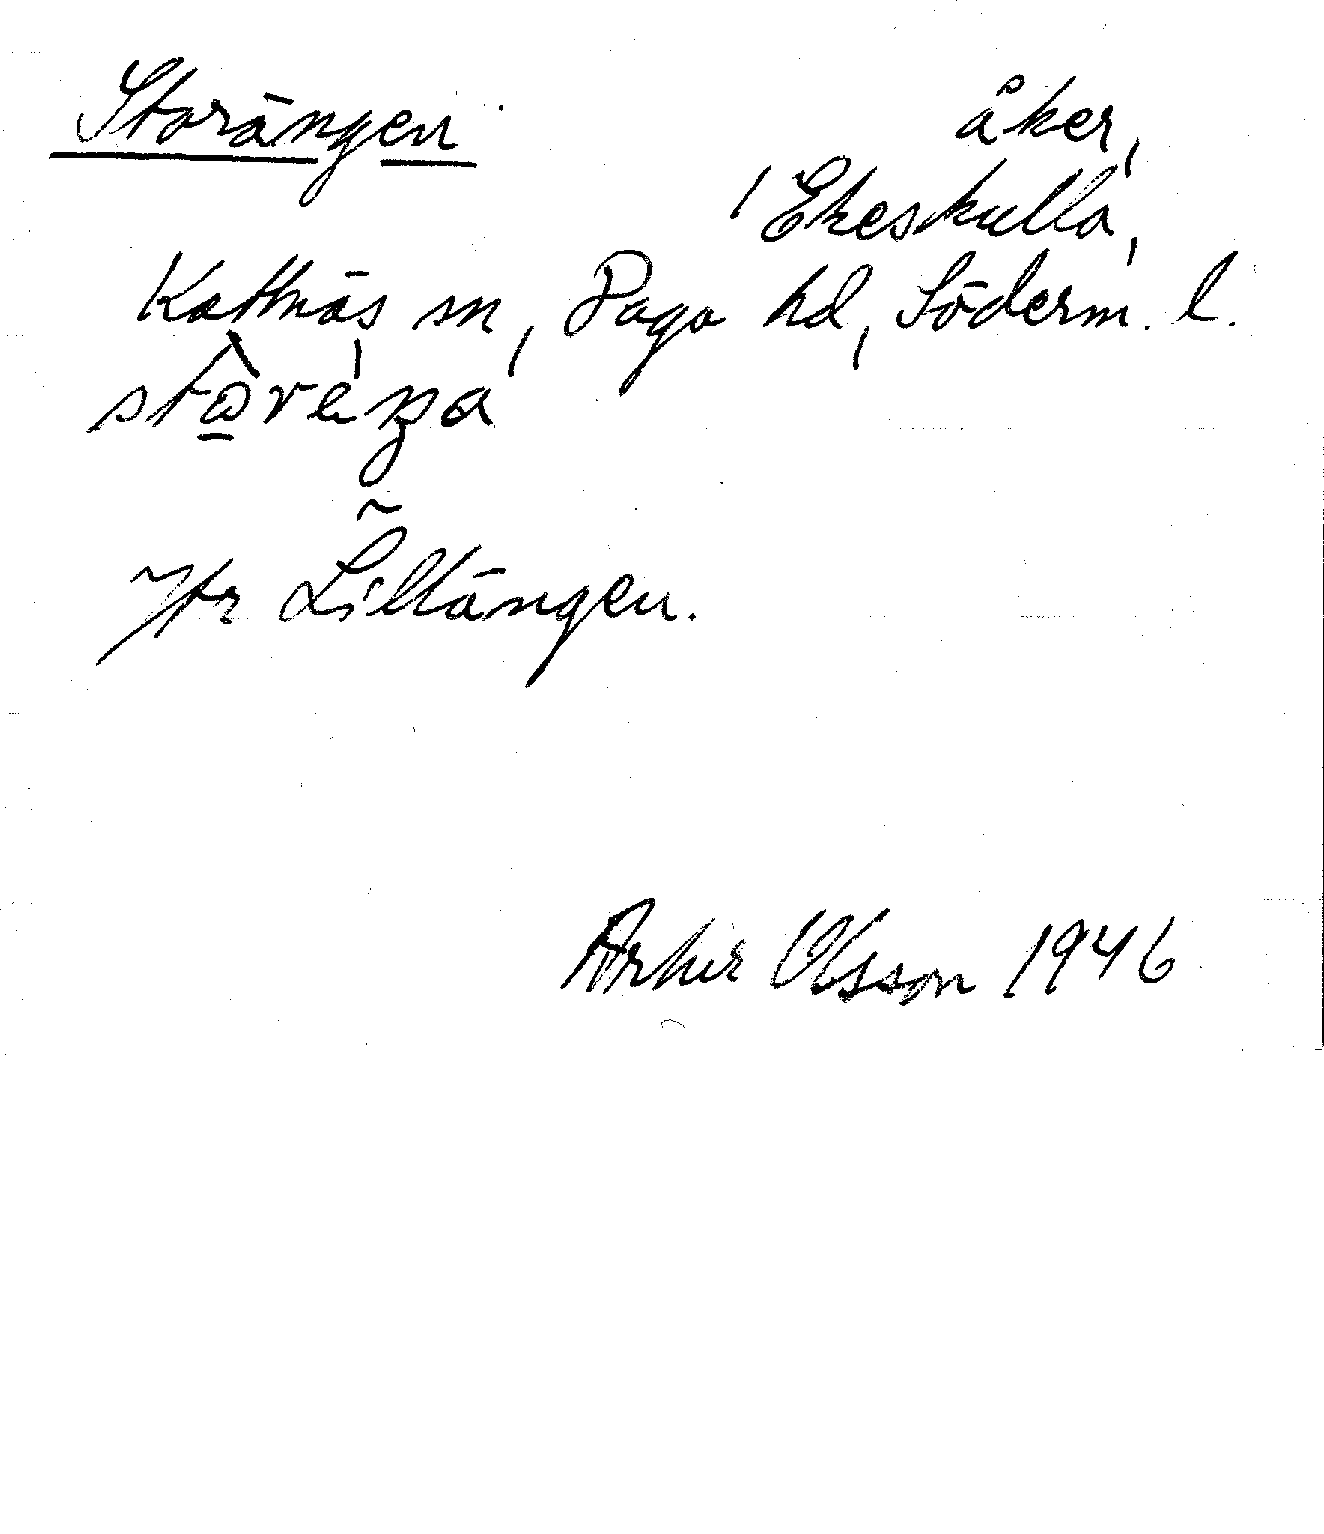 Storängen
åker,
Ekeskulla,
Kattnäs sn, Daga hd, Söderm. l.
Jfr Lillängen.
Arher Olsson 1946